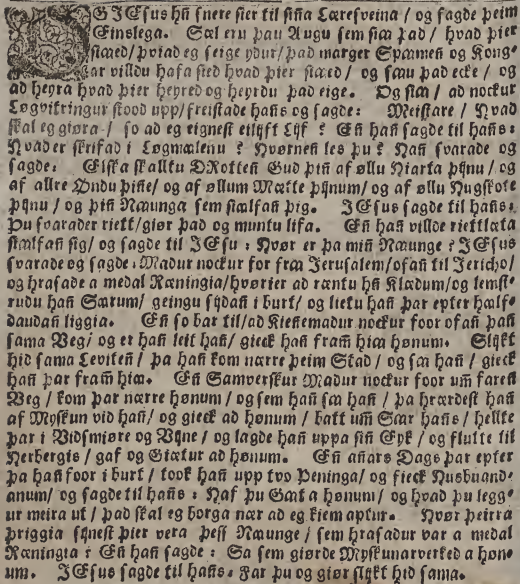 OG JEsus hn̄ snere sier til sin̄a Læresveina / og sagde þeim
Einslega. Sæl eru þau Augu sem siꜳ þad / hvad þier
siꜳed / þviad eg seige ydur / þad marger Spꜳmen̄ og Kong-
ar villdu hafa sied hvad þier siꜳed / og sꜳu þad ecke / og
ad heyra hvad þier heyred og heyrdu þad eige. Og siꜳ / ad nockur
Løgvitringur stood upp / freistade hans og sagde: Meistare / Hvad
skal eg giøra / so ad eg eignest eilijft Lijf ? En̄ han̄ sagde til hans:
Hvad er skrifad i Løgmꜳlenu ? Hvørnen̄ les þu ? Han̄ svarade og
sagde: Elska skalltu DRotten̄ Gud þin̄ af øllu Hiarta þijnu / og
af allre Øndu þin̄e / og af øllum Mætte þijnum / og af øllu Hugskote
þijnu / og þin̄ Nꜳunga sem sialfan̄ þig. JEsus sagde til hans:
Þu svarader riett / giør þad og muntu lifa. En̄ han̄ villde riettlæta
sialfan̄ sig / og sagde til JEsu: Hvør er þa min̄ Nꜳunge ? JEsus
svarade og sagde: Madur nockur for fra Jerusalem / ofan̄ til Jericho /
og hrasade a medal Ræningia / hvørier ad ræntu hn̄ Klædum / og lemst-
rudu han̄ Sꜳrum / geingu sijdan̄ i burt / og lietu han̄ þar epter hꜳlf-
daudan̄ liggia. En̄ so bar til / ad Kien̄emadur nockur foor ofan̄ þan̄
sama Veg / og er han̄ leit han̄ / gieck han̄ fram̄ hiꜳ hønum. Slijkt
hid sama Leviten̄ / þa han̄ kom nærre þeim Stad / og sꜳ han̄ / gieck
han̄ þar fram̄ hiꜳ. En̄ Samverskur Madur nockur foor um faren̄
Veg / kom þar nærre hønum / og sem han̄ sꜳ han̄ / þa hrærdest han̄
af Myskun vid han̄ / og gieck ad hønum / batt um̄ Sꜳr hans / hellte
þar i Vidsmiøre og Vijne / og lagde han̄ uppa sin̄ Eyk / og flutte til
Herbergis / gaf og Giætur ad hønum. En̄ an̄ars Dags þar epter
þa han̄ foor i burt / took han̄ upp tvo Peninga / og fieck Husbuand-
anum / og sagde til hans: Haf þu Gꜳt a hønum / og hvad þu legg-
ur meira ut / þad skal eg borga nær ad eg kiem aptur. Hvør þeirra
þriggia sijnest þier vera þess Nꜳunge / sem hrasadur var a medal
Ræningia ? En̄ han̄ sagde: Sa sem giørde Myskunarverked a høn-
um. JEsus sagde til hans: Far þu og giør slijkt hid sama.